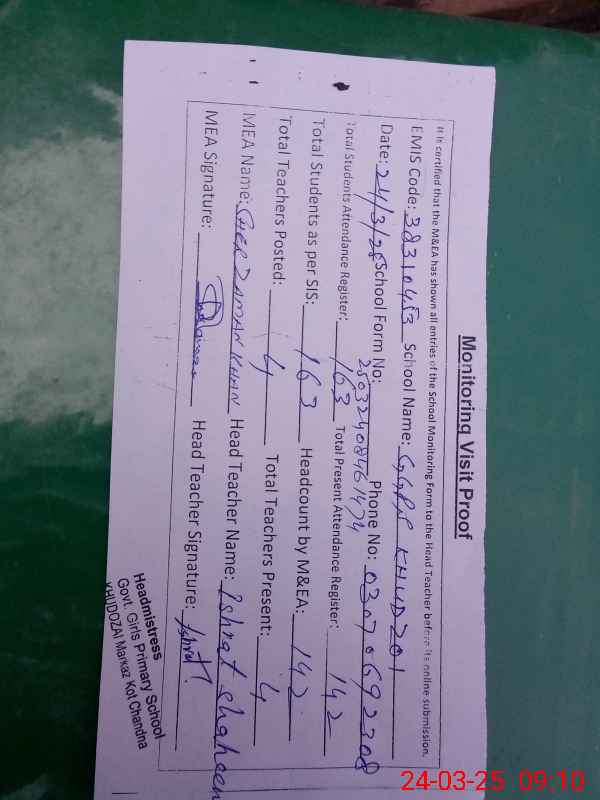 Monitoring Visit Proof
It is certified that the M&EA has shown all entries of the School Monitoring Form to the Head Teacher before its online submission.
EMIS Code: 38310453 School Name: GGPS KHUDZOI
Date: 24/3/25 School Form No: 25032408461474 Phone No: 03070692308
Total Students Attendance Register: 163 Total Present Attendance Register: 142
Total Students as per SIS: 163 Headcount by M&EA: 142
Total Teachers Posted: 4 Total Teachers Present: 4
MEA Name: SHER ZAMAN KHAN Head Teacher Name: Ishrat Shaheen
MEA Signature: Head Teacher Signature: Ishrat
Headmistress
Govt. Girls Primary School
KHUDOZAI Markaz Kot Chandna
24-03-25 09:10